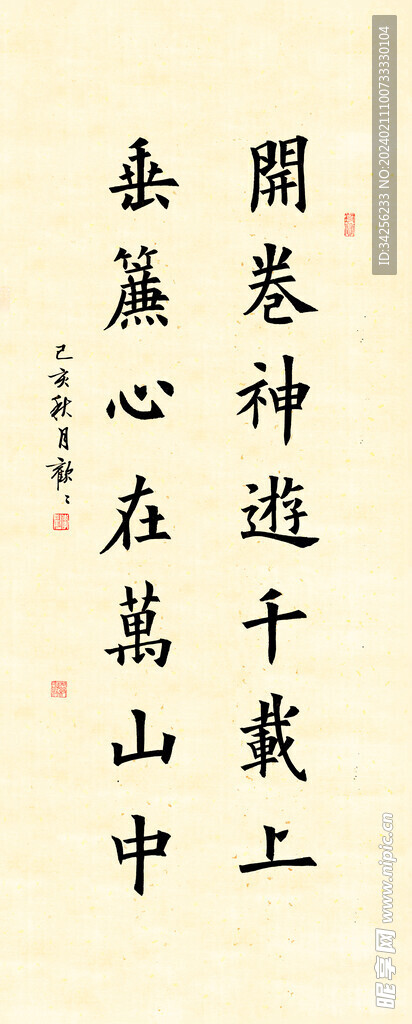 開卷神遊千載上
垂簾心在萬山中
己亥秋月歡〻
ID:34256233 NO:20240211100733330104
昵享网 www.nipic.cn